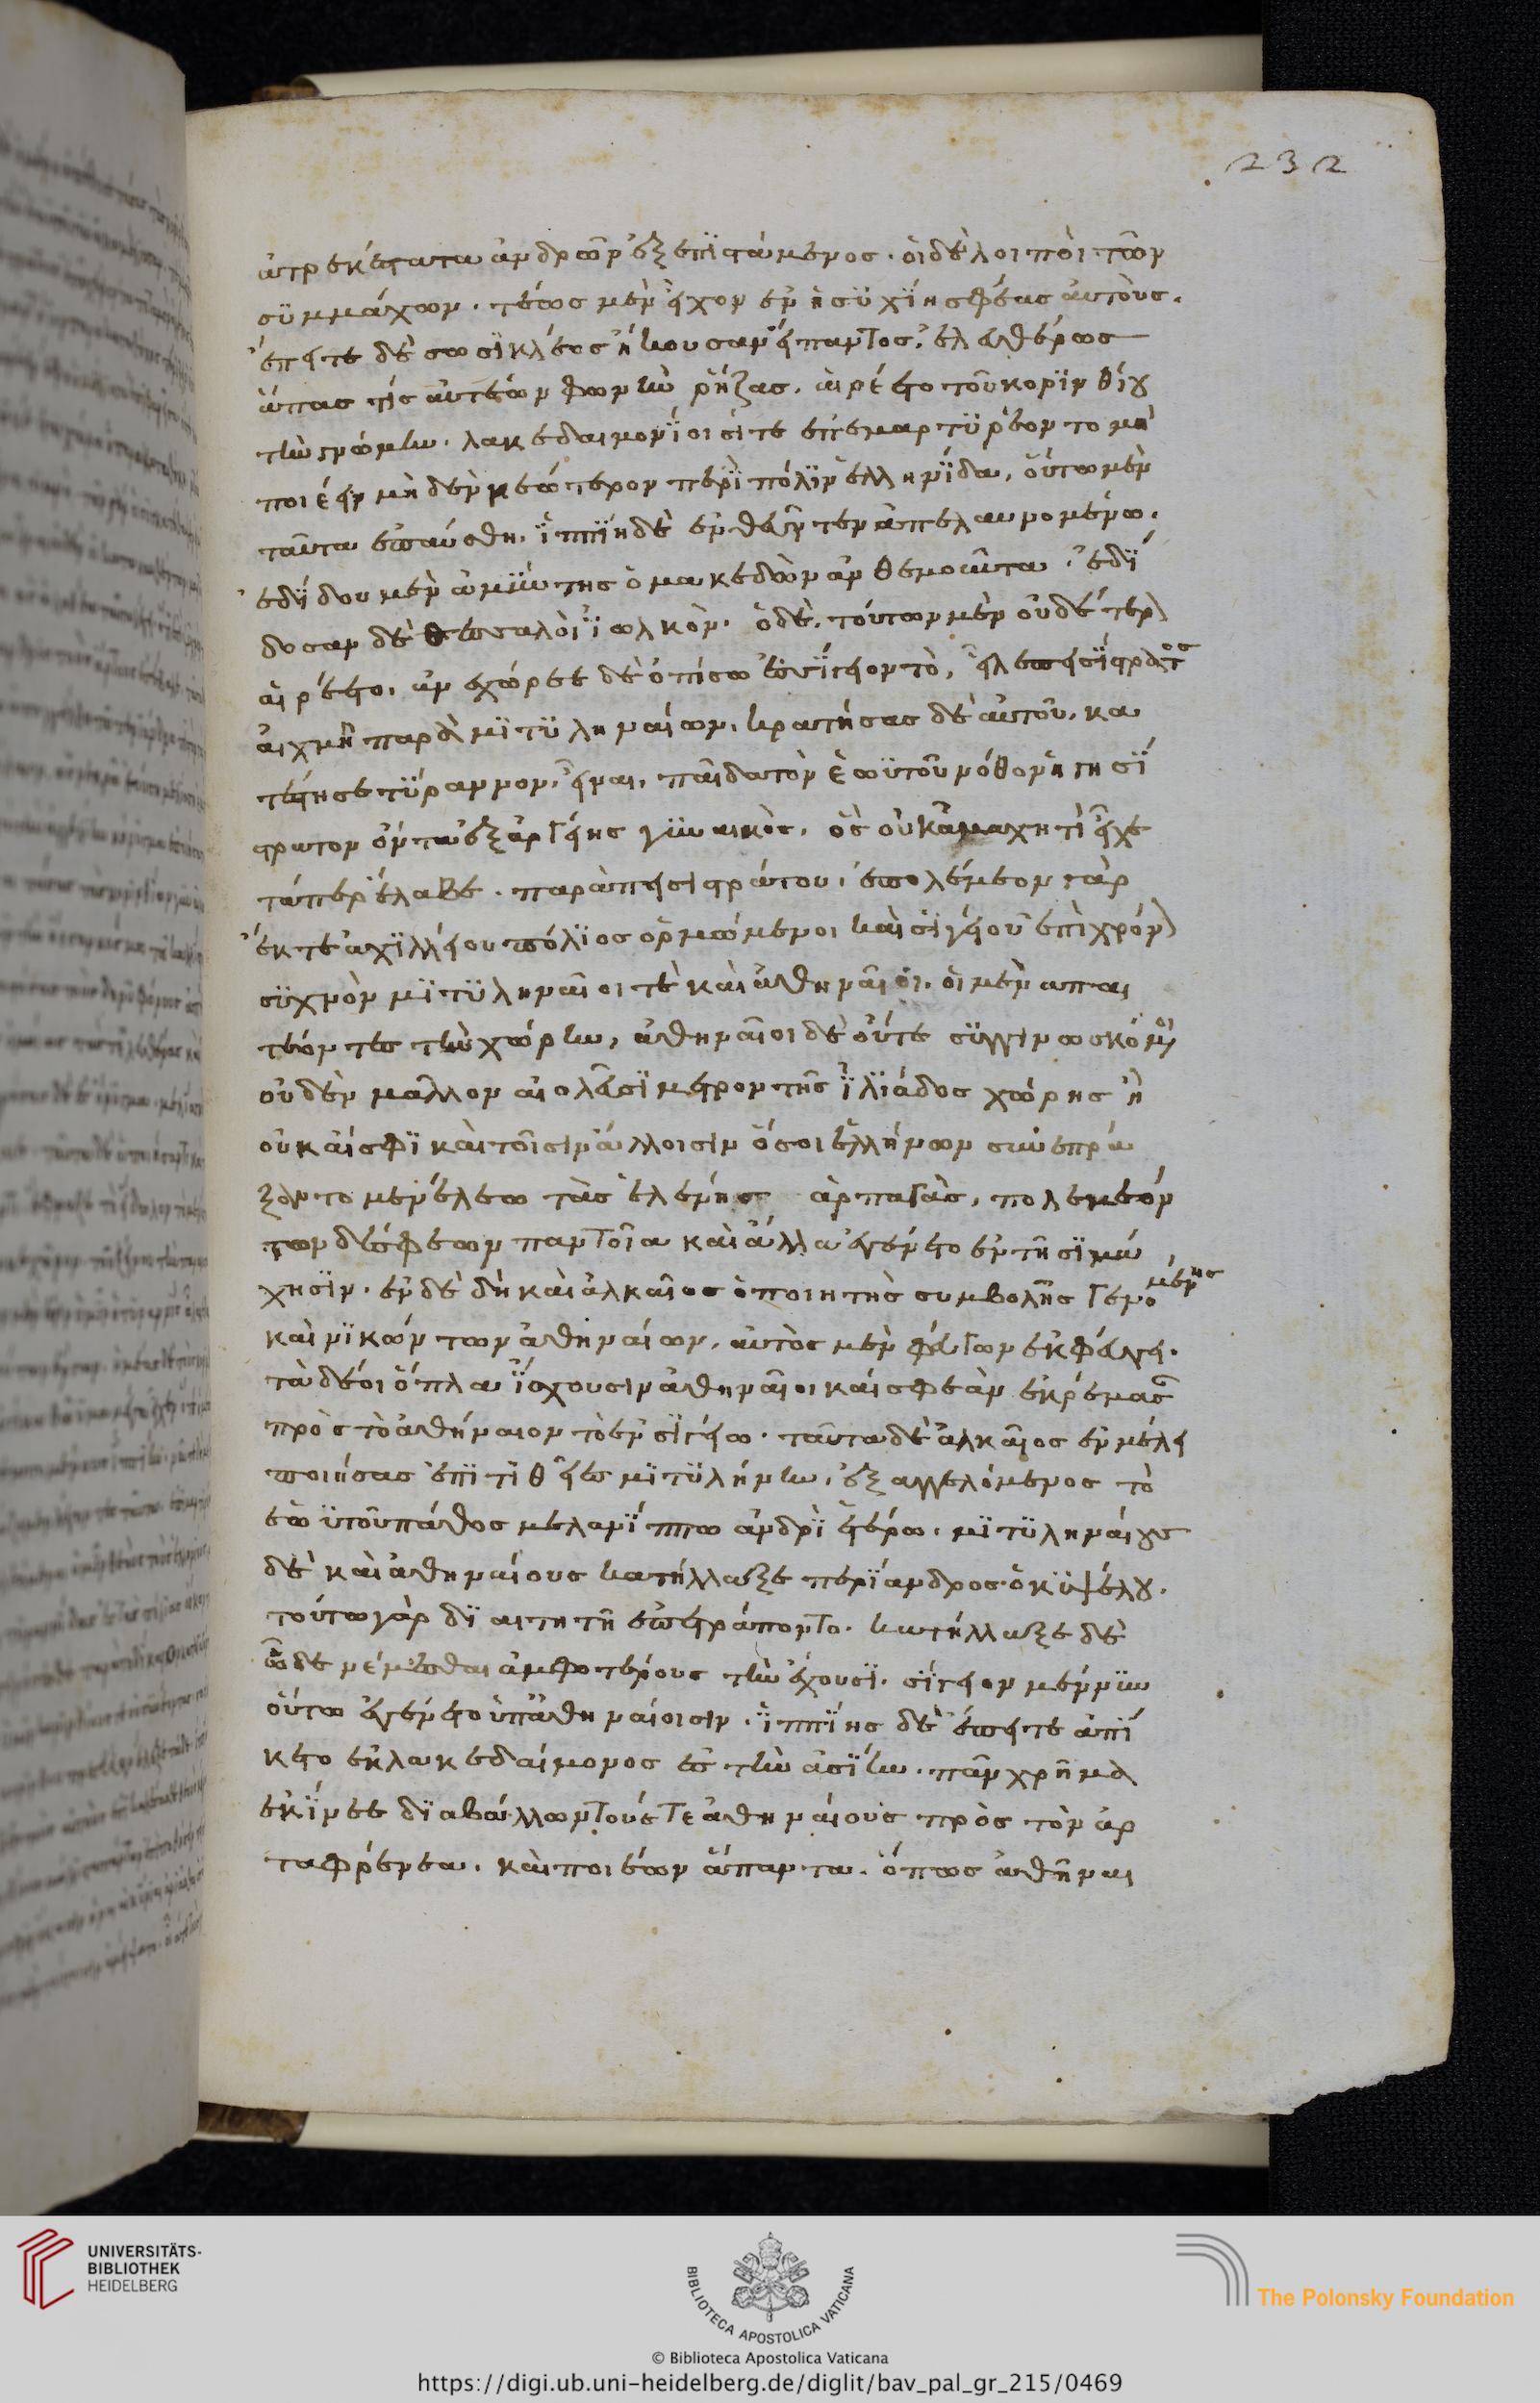 232
ἀτρεκέστατα ἀνδρῶν ἐξεπϊστάμενος. οἱ δὲ λοιποὶ τῶν
σϋμμάχων. τέως μὲν εἶχον ἐν ἡσϋχΐη σφέας αὐτοὺς.
ἐπεί τε δὲ σωσϊκλέος ἤκουσαν εἴπαντος ἐλευθέρως
ἅπας τίς αὐτέων φωνὴν ῥήξας. αἱρέετο τοῦ κορϊνθίου
τὴν γνώμην. λακεδαιμονΐοισί τε ἐπεμαρτϋρέοντο μὴ
ποιέειν μὴδὲν νεώτερον περὶ πόλϊν ἑλληνΐδα. οὕτω μὲν
ταῦτα ἐπαύσθη. ἱππΐη δὲ ἐνθεῦτεν ἀπελαυνομένω.
ἐδΐδου μὲν ἀμϋντης ὁ μακεδὼν ἀνθεμοῦντα. ἐδΐ
δοσαν δὲ θεσσαλοὶ ἰωλκὸν. ὁ δὲ. τούτων μὲν οὐδέτερα
αἱρέετο. ἀνεχώρεε δὲ ὀπίσω ἐς σΐγειον τὸ, εἷλε πεισΐστρατος
αἰχμῇ παρὰ μϊτϋληναίων. κρατήσας δὲ αὐτοῦ. κα
τέστησε τϋραννον εἶναι. παῖδα τὸν ἑωϋτοῦ νόθον ἡγησΐ
στρατον ὄντα ἐξ ἀργείης γϋναικὸς. ὃς οὐκ ἀμαχητὶ εἶχε
τάπερ ἔλαβε. παρὰ πεισιστράτου. ἐπολέμεον γὰρ
ἔκ τε ἀχϊλληΐου πόλϊος ὁρμώμενοι καὶ σϊγείου ἐπὶ χρόνον
σϋχνὸν μϊτϋληναῖοι τὲ καὶ ἀθηναῖοι. οἱ μὲν απαι
τέοντες τὴν χώρην, ἀθηναῖοι δὲ οὔτε σϋγγινωσκόμενοι
οὐδὲν μᾶλλον αἰολεῦσϊ μετεὸν τῆς ἰλϊάδος χώρης ἢ
οὐ καί σφϊ καὶ τοῖσιν ἄλλοισιν ὅσοι ἑλλήνων συνεπρή
ξαντο μενέλεω τὰς ἑλένης ἁρπαγὰς, πολεμεόν
των δέ σφεων παντοῖα καὶ ἄλλα ἐγένετο ἐν τῆσϊ μά
χησϊν. ἐν δὲ δὴ καὶ ἀλκαῖος ὁ ποιητὴς συμβολῆς γενομένης
καὶ νϊκών των ἀθηναίων. αὐτὸς μὲν φεύγων ἐκφεύγει.
τὰ δέ οἱ ὅπλα ἴσχουσιν ἀθηναῖοι καί σφεα ἀνεκρέμασαν
πρὸς τὸ ἀθήναιον τὸ ἐν σϊγείω. ταῦτα δὲ ἀλκαῖος ἐν μέλει
ποιήσας ἐπϊτϊθεῖ ἐς μϊτϋλήνην. ἐξαγγελόμενος τὸ
ἑωϋτοῦ πάθος μελανΐππω ἀνδρὶ ἑτέρω. μϊτϋληναίους
δὲ καὶ ἀθηναίους κατήλλαξε περΐανδρος ὁ κϋψέλου.
τούτω γὰρ δϊαιτητῆ ἐπετράποντο. κατήλλαξε δὲ
ὧδε νέμεσθαι ἀμφοτέρους τὴν ἔχουσϊ. σΐγειον μέν νϋν
οὕτω ἐγένετο ὑπ' ἀθηναίοισιν. ἱππΐης δὲ ἐπεί τε ἀπΐ
κετο ἐκ λακεδαίμονος ἐς τὴν ἀσΐην. πᾶν χρῆμα
ἐκΐνεε δϊαβάλλων τούς τε ἀθηναίους πρὸς τὸν ἀρ
ταφρένεα. καὶ ποιέων ἅπαντα. ὅπως ἀθῆναι
UNIVERSITÄTS-
BIBLIOTHEK
HEIDELBERG
BIBLIOTECA APOSTOLICA VATICANA
The Polonsky Foundation
© Biblioteca Apostolica Vaticana
https://digi.ub.uni-heidelberg.de/diglit/bav_pal_gr_215/0469